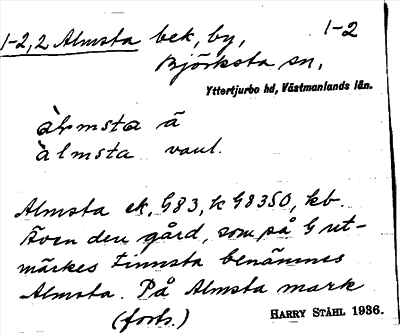 1-2, 2 Almsta bek, by, 1-2
Björksta sn,
Yttertjurbo hd, Västmanlands län.
àḷmsta ä
àlmsta vanl.
Almsta ek, G83, k G8350, kb.
Även den gård, som på G ut-
märkes Finnsta benämnes
Almsta. På Almsta mark
(forts.) HARRY STÅHL 1936.